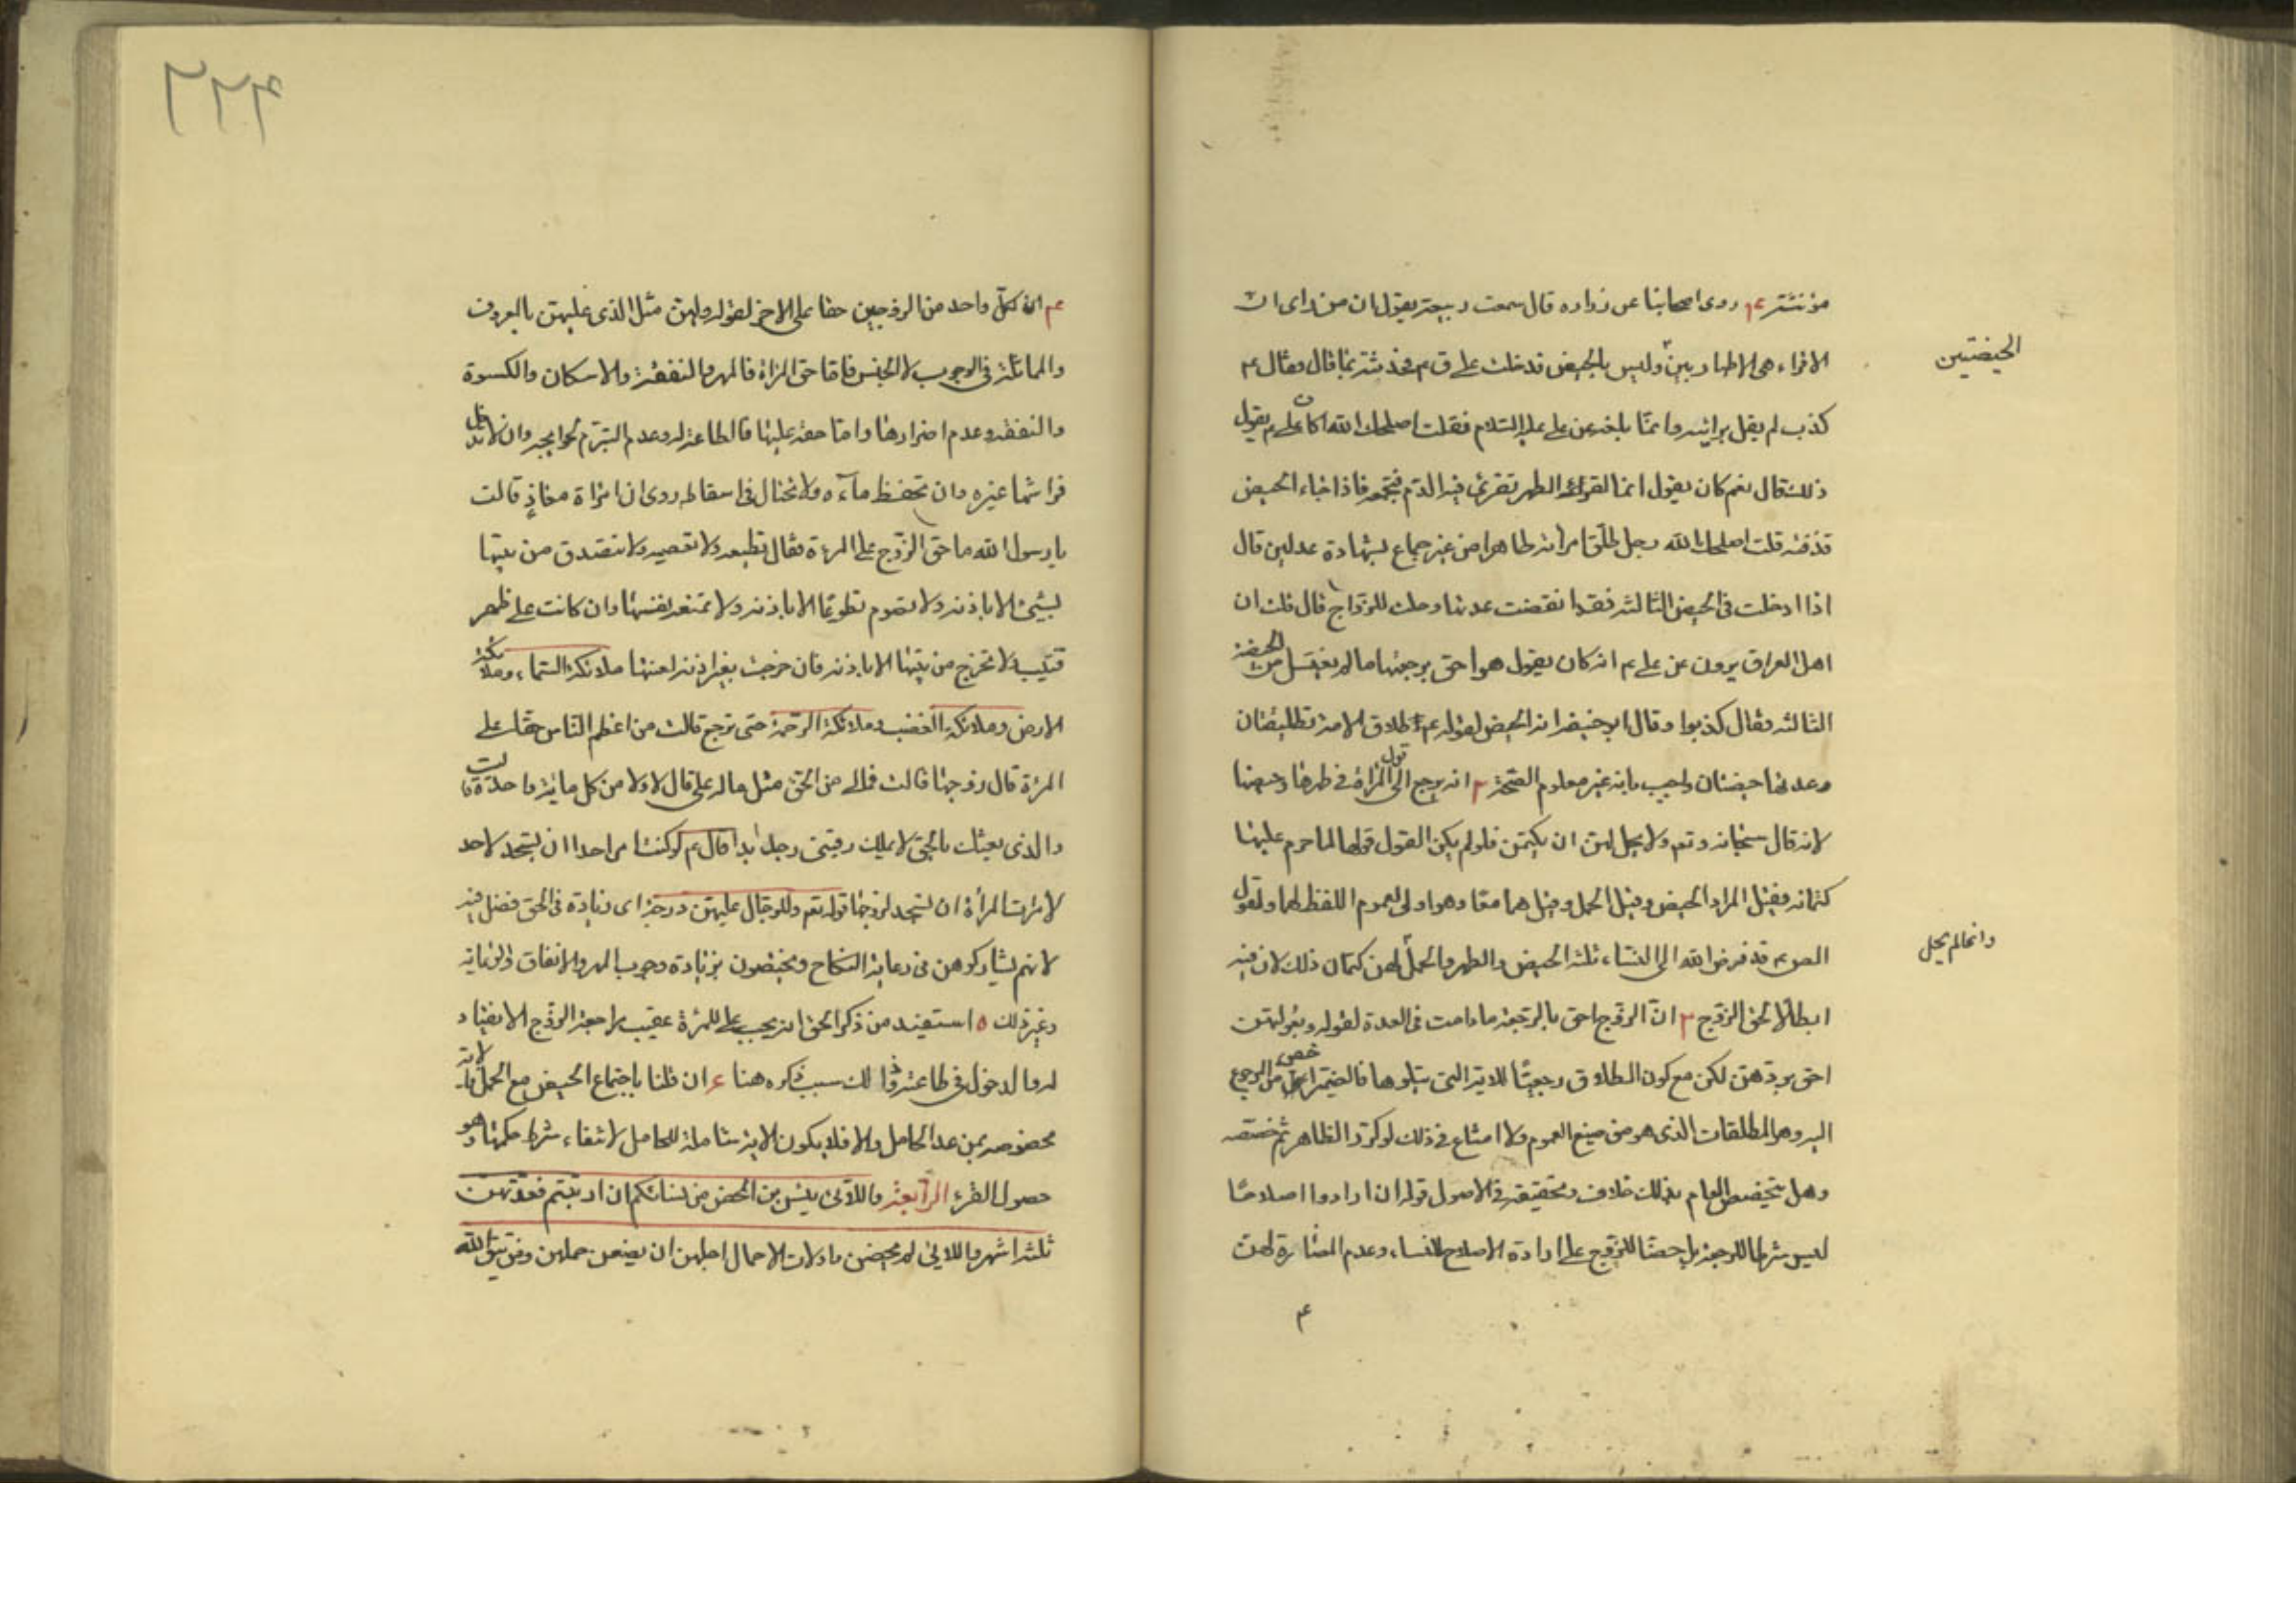 مؤنثتر عم روى اصحابنا عن زراره قال سمعت ربيعة يقول ان من راى ان
الاقراء هى الاطهار بين وليس بالحيض فدخلت على ق ع فحدثته بما قال فقال ع
الحيضتين
كذب لم يقل برائيه وانما بلغه عن على عليه السلام فقلت اصلحك الله اكان على ع يقول
ذلك قال نعم كان يقول انما القرء الطهر تقرئ فيه الدم فتجمعه فاذا جاء الحيض
قذفته قلت اصلحك الله رجل طلق امراته طاهرا من غير جماع بشهادة عدلين قال
اذا ادخلت فى الحيض الثالثه فقد انقضت عدتها وحلت للزواج قال قلت ان
اهل العراق يروون عن على ع انه كان يقول هو احق برجعتها ما لم يغتسل من الحيضة
الثالثه فقال كذبوا وقال ابو حنيفه انه الحيض لقوله عم طلاق الامة تطليقتان
وعدتها حيضتان واجيب بانه غير معلوم الصحة ٢ انه يرجع الى قول المراة فى طهرها وحيضها
لانه قال سبحانه وتعم ولا يحل لهن ان يكتمن فلو لم يكن القول قولها لما حرم عليها
كتمانه فقيل المراد الحيض وقيل الحمل وقيل هما معا وهو اولى لعموم اللفظ لهما ولقول
الص ع قد فرض الله الى النساء ثلثه الحيض والطهر والحمل لهن كتمان ذلك لان فيه
وانما لم يحل
ابطالا لحق الزوج ٣ ان الزوج احق بالرجعة ما دامت فى العدة لقوله وبعولتهن
احق بردهن لكن مع كون الطلاق رجعيا للاية التى يتلوها فالضمير اخص من المرجوع
اليه وهو المطلقات الذى هو من صيغ العموم ولا امتناع فى ذلك لو كرر الظاهر ثم خصصه
وهل يتخصص العام بذلك خلاف وتحقيقه فى الاصول قوله ان ارادوا اصلاحا
ليس شرطا للرجعة بل حضا للزوج على ارادة الاصلاح للنساء وعدم المضارة لهن
۴
٢٢۴
عم ان لكل واحد من الزوجين حقا على الاخر لقوله ولهن مثل الذى عليهن بالمعروف
والمماثلة فى الوجوب لا الجنس فاما حق المراة فالمهر والنفقة والاسكان والكسوة
والنفقه وعدم اضرارها واما حقه عليها فالطاعة له وعدم التبرم لحوايجه وان لا تدخل
فراشها غيره وان تحفظ مآءه ولا تحتال فى اسقاطه روى ان امراة معاذ قالت
يا رسول الله ما حق الزوج على المرءة فقال تطيعه ولا تعصيه ولا تتصدق من بيتها
بشيئ الا باذنه ولا تصوم تطوعا الا باذنه ولا تمنعه نفسها وان كانت على ظهر
قتب ولا تخرج من بيتها الا باذنه فان خرجت بغير اذنه لعنتها ملائكة السماء وملائكة
الارض وملائكة الغضب وملائكة الرحمة حتى ترجع قالت من اعظم الناس حقا على
المرءة قال زوجها قالت فمالى من الحق مثل ماله على قال لا ولا من كل ماية واحدة قالت
والذى بعثك بالحق لا يملك رقبتى رجل ابدا قال ع لو كنت امر احدا ان يسجد لاحد
لامرت المراة ان تسجد لزوجها قوله تعم وللرجال عليهن درجة اى زيادة فى الحق فضل فيه
لانهم يشاركوهن فى رعاية النكاح ويختصون بزيادة وجوب المهر والانفاق والرعاية
وغير ذلك ٥ استفيد من ذكر الحق انه يجب على المرءة عقيب مراجعة الزوج الانقياد
له والدخول فى طاعته وذا لك سبب ذكره هنا ع ان قلنا باجتماع الحيض مع الحمل فالاية
مخصوصه بمن عدا الحامل والا فلا يكون الاية شاملة للحامل لانتفاء شرط حكمها وهو
حصول القرء الرابعة واللائى يئسن من المحيض من نسائكم ان ارتبتم فعدتهن
ثلثه اشهر واللائى لم يحضن واولات الاحمال اجلهن ان يضعن حملهن ومن يتق الله